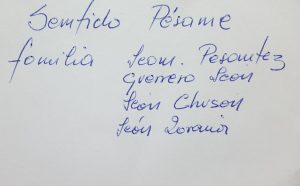 Sentido Pésame
familia León. Pesantez
Guerrero León
León Chuson
León